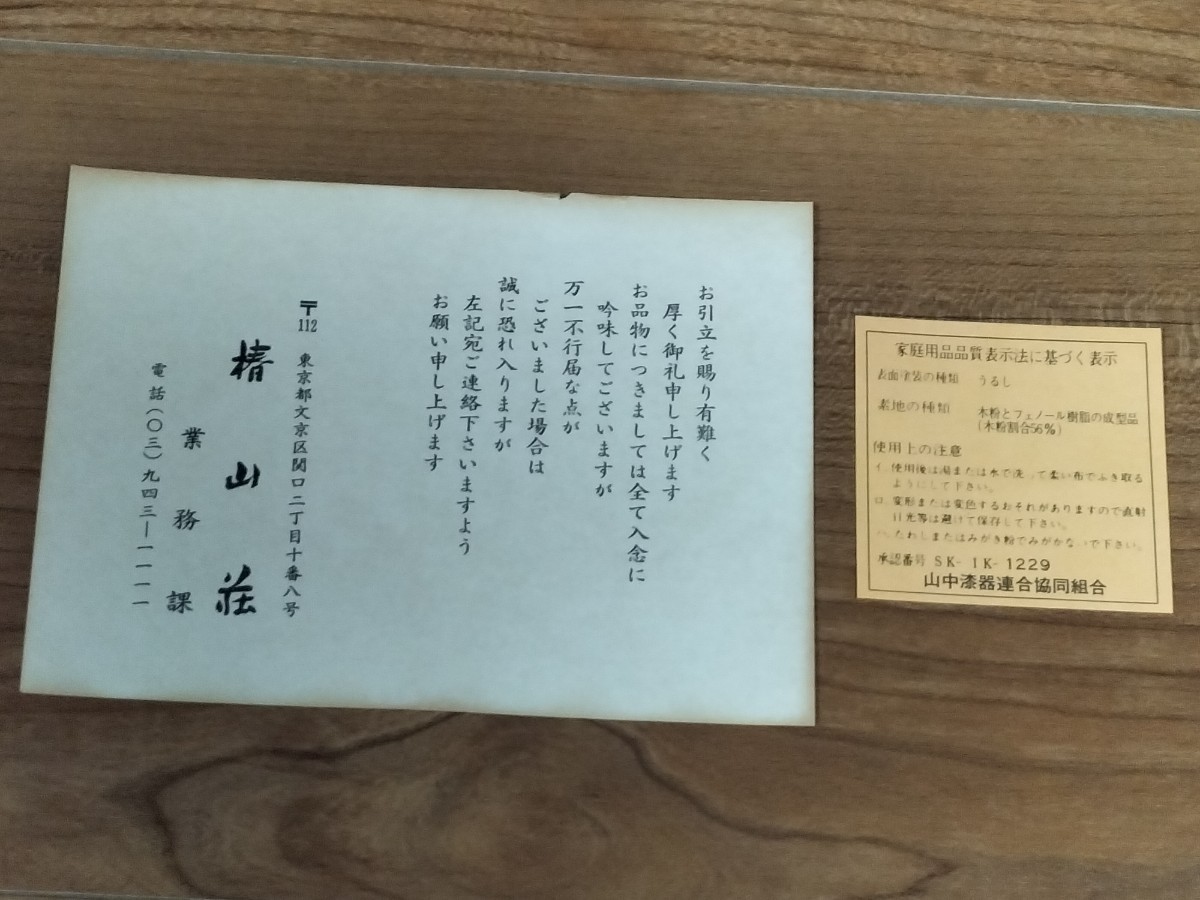 お引立を賜り有難く
厚く御礼申し上げます
お品物につきましては全て入念に
吟味してございますが
万一不行届な点が
ございました場合は
誠に恐れ入りますが
左記宛ご連絡下さいますよう
お願い申し上げます
〒112 東京都文京区関口二丁目十番八号
椿山荘
業務課
電話(〇三)九四三―一一一一
家庭用品品質表示法に基づく表示
表面塗装の種類 うるし
素地の種類 木粉とフェノール樹脂の成型品
(木粉割合56%)
使用上の注意
イ. 使用後は湯または水で洗って柔い布でふき取る
ようにして下さい。
ロ. 変形または変色するおそれがありますので直射
日光等は避けて保存して下さい。
ハ. たわしまたはみがき粉でみがかないで下さい。
承認番号 SK-1K-1229
山中漆器連合協同組合